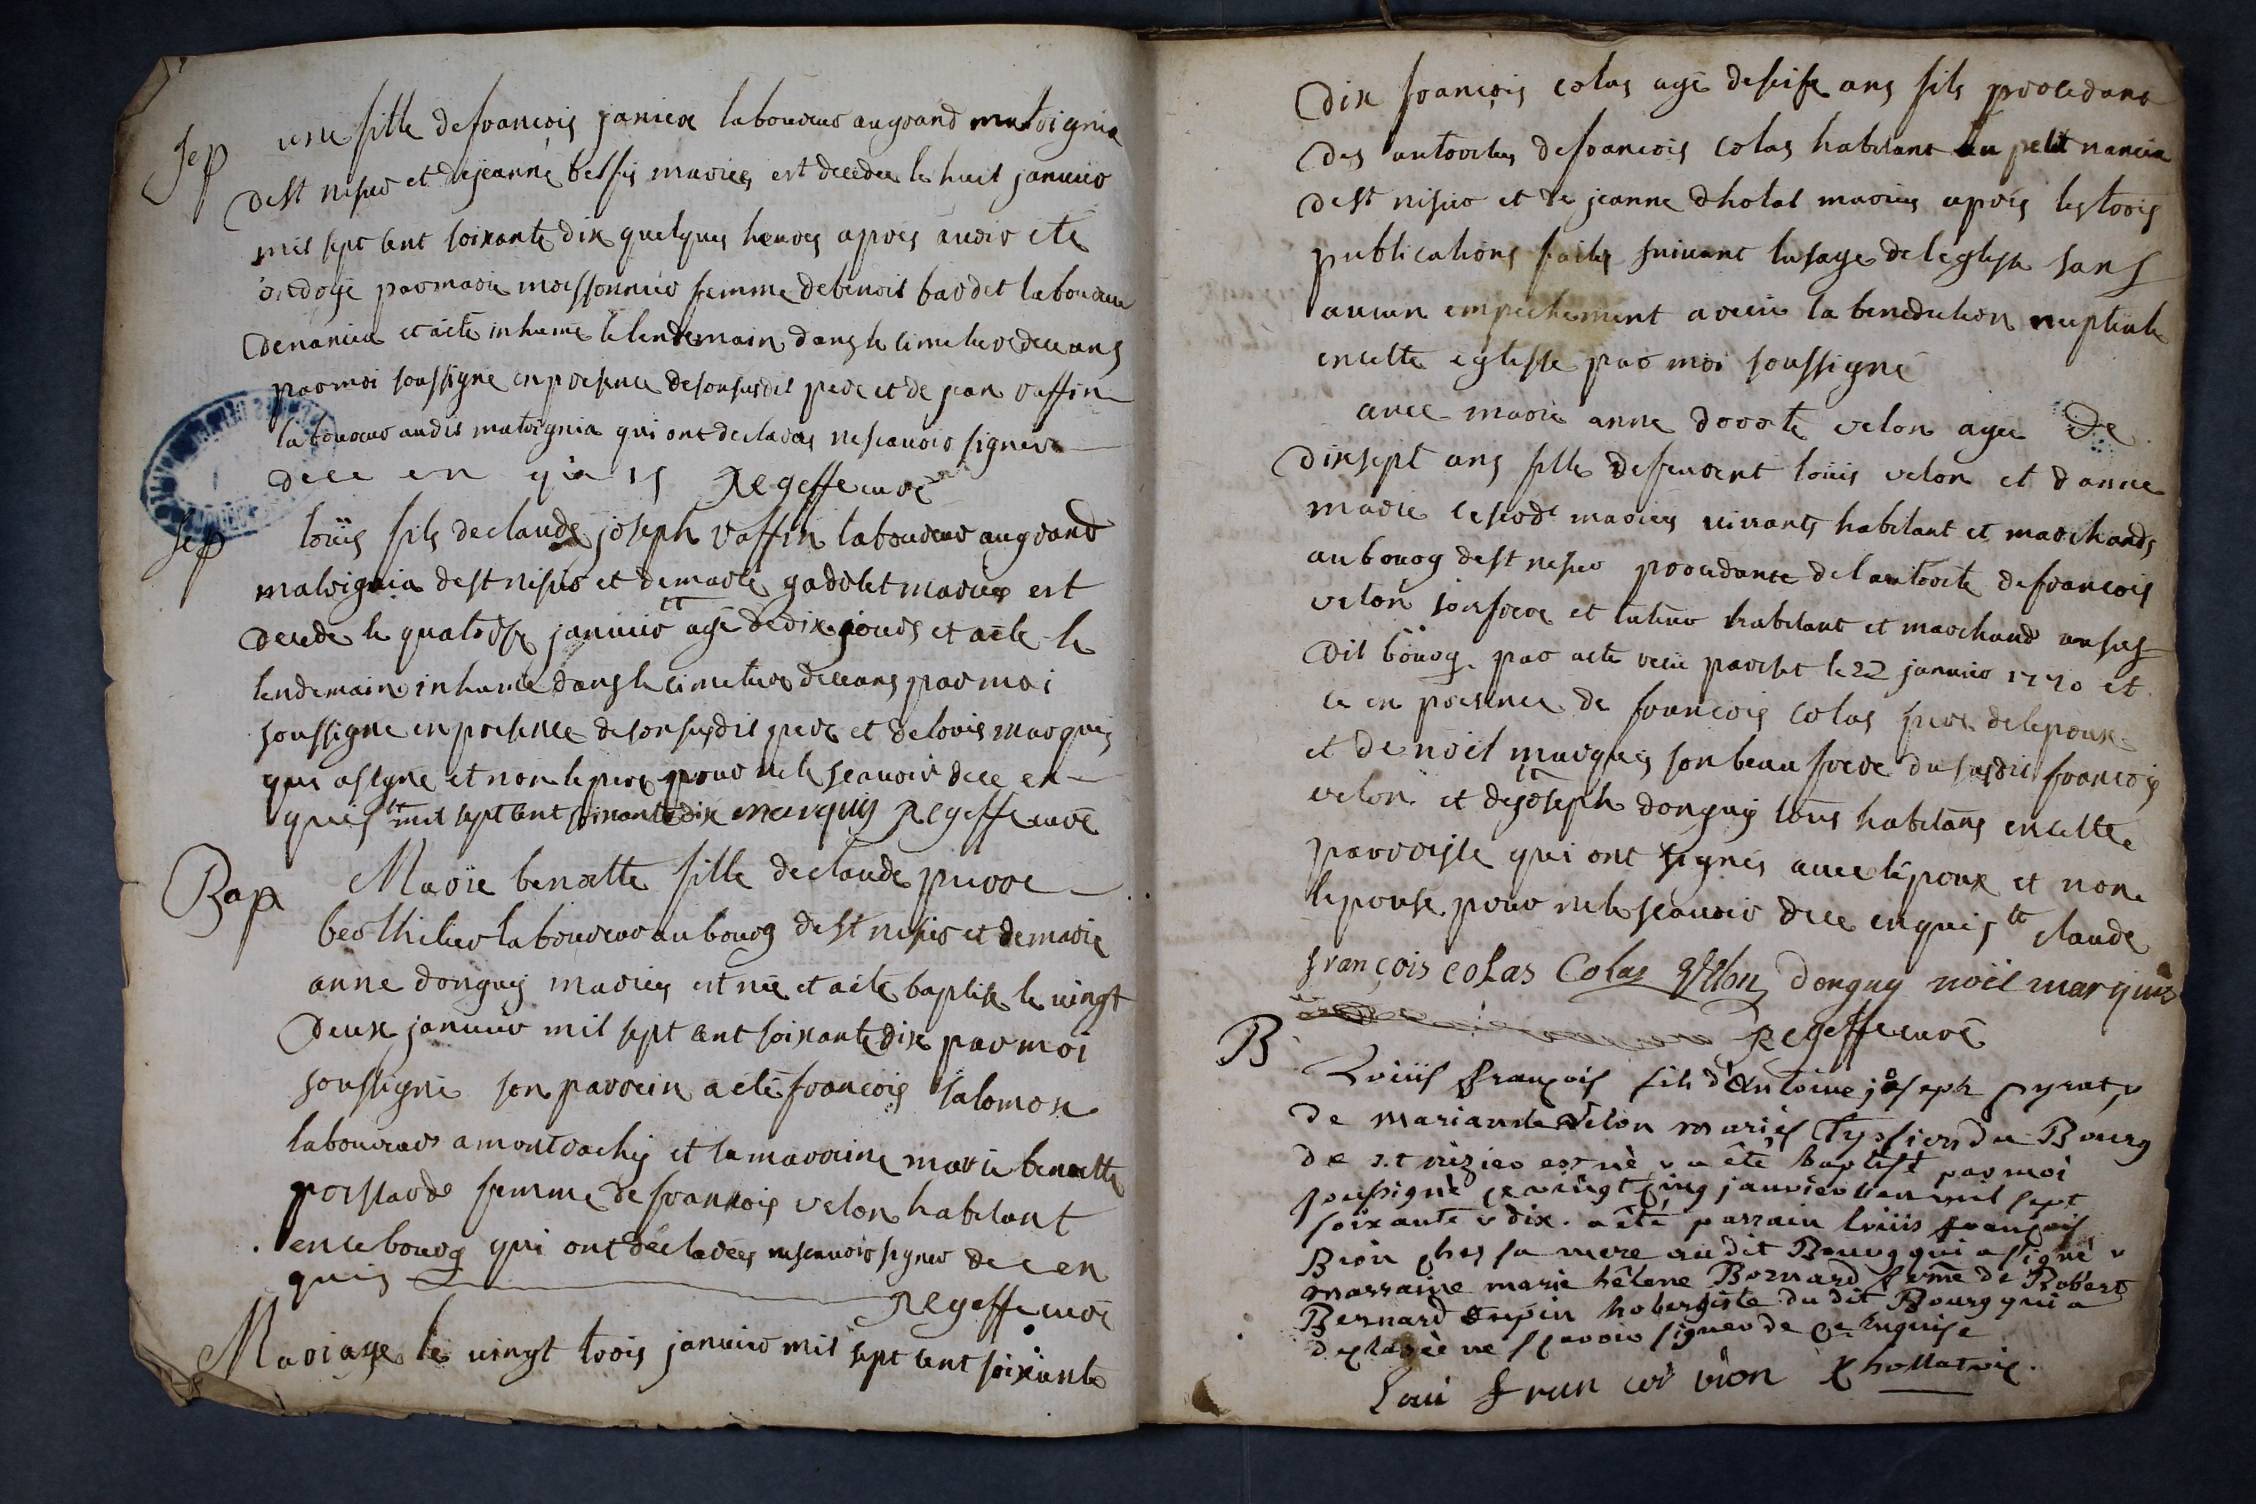 Sep
une fille de francois janier laboureur au grand malvignia
de st nisier et de jeanne bessis mariés est decedee le huit janvier
mil sept cent soixante dix quelques heures apres avoir ete
ondoyé par marie moissonnier femme de benoit bardet laboureur
de nancia et a été inhumé le lendemain dans le cimetiere de ceans
par moi soussigné en presence de son susdit pere et de jean vaffin
laboureur audit malvignia qui ont declarés ne scavoir signer
de ce enquis Regeffe curé
Sep
loüis fils de claude joseph vaffin laboureur au grand
malvignia de st nisier et de marie gadolet mariés est
decede le quatorse janvier agé de dix jours et a ete le
lendemain inhumé dans le cimetiere de ceans par moi
soussigné en presence de son susdit pere et de lovis marquis
qui a signé et non le pere pour ne le scavoir de ce en
quis mil sept cent soixante dix marquis Regeffe curé
Bap
Marie benoitte fille de claude pierre
berthelier laboureur au bourg de st nisier et de marie
anne donguy mariés est née et a été baptisé le vingt
deux janvier mil sept cent soixante dix par moi
soussigné son parrein a eté francois salomon
laboureur a montrachy et la marreine marie benoitte
poissarde femme de francois velon habitant
en ce bourg qui ont déclarés ne scavoir signer de ce en
quis Regeffe curé
Mariage le vingt trois janvier mil sept cent soixante
dix francois colas agé de seise ans fils procedant
des autorites de francois colas habitant au petit nancia
de st nisier et de jeanne dholat mariés aprés les trois
publications faites suivant lusage de leglise sans
aucun empechement a recu la benediction nuptiale
en cette eglise par moi soussigné
avec marie anne dorote velon agee de
dix sept ans fille de feu loüis velon et danne
marie mariés vivants habitant et marchands
au bourg de st nisier procedante de lautorite de francois
velon son frere et tuteur habitant et marchand au sus
dit bourg par acte recu parisot le 22 janvier 1770 et
ce en presence de francois colas pere de lepoux
et de noël marquis son beau frere du susdit francois
velon et de joseph donguy tous habitans en cette
parroisse qui ont signés avec lépoux et non
lepouse pour ne le scavoir de ce enquis claude
françois colas Colas Velon donguy noël marquis
Regeffe curé
B
Loüis François fils d'Antoine joseph pyrat, &
de marianne Velon mariés du Bourg
de st nizier est né & a été baptisé par moi
soussigné ce vingt cinq janvier l'an mil sept
soixante & dix. a été parrain loüis françois
Bion chez sa mere au dit Bourg qui a signé &
marraine marie hélene Bernard feme de Robert
Bernard hobergiste du dit Bourg qui a
declarée ne sçavoir signer de ce enquise
Loui fran coi bion